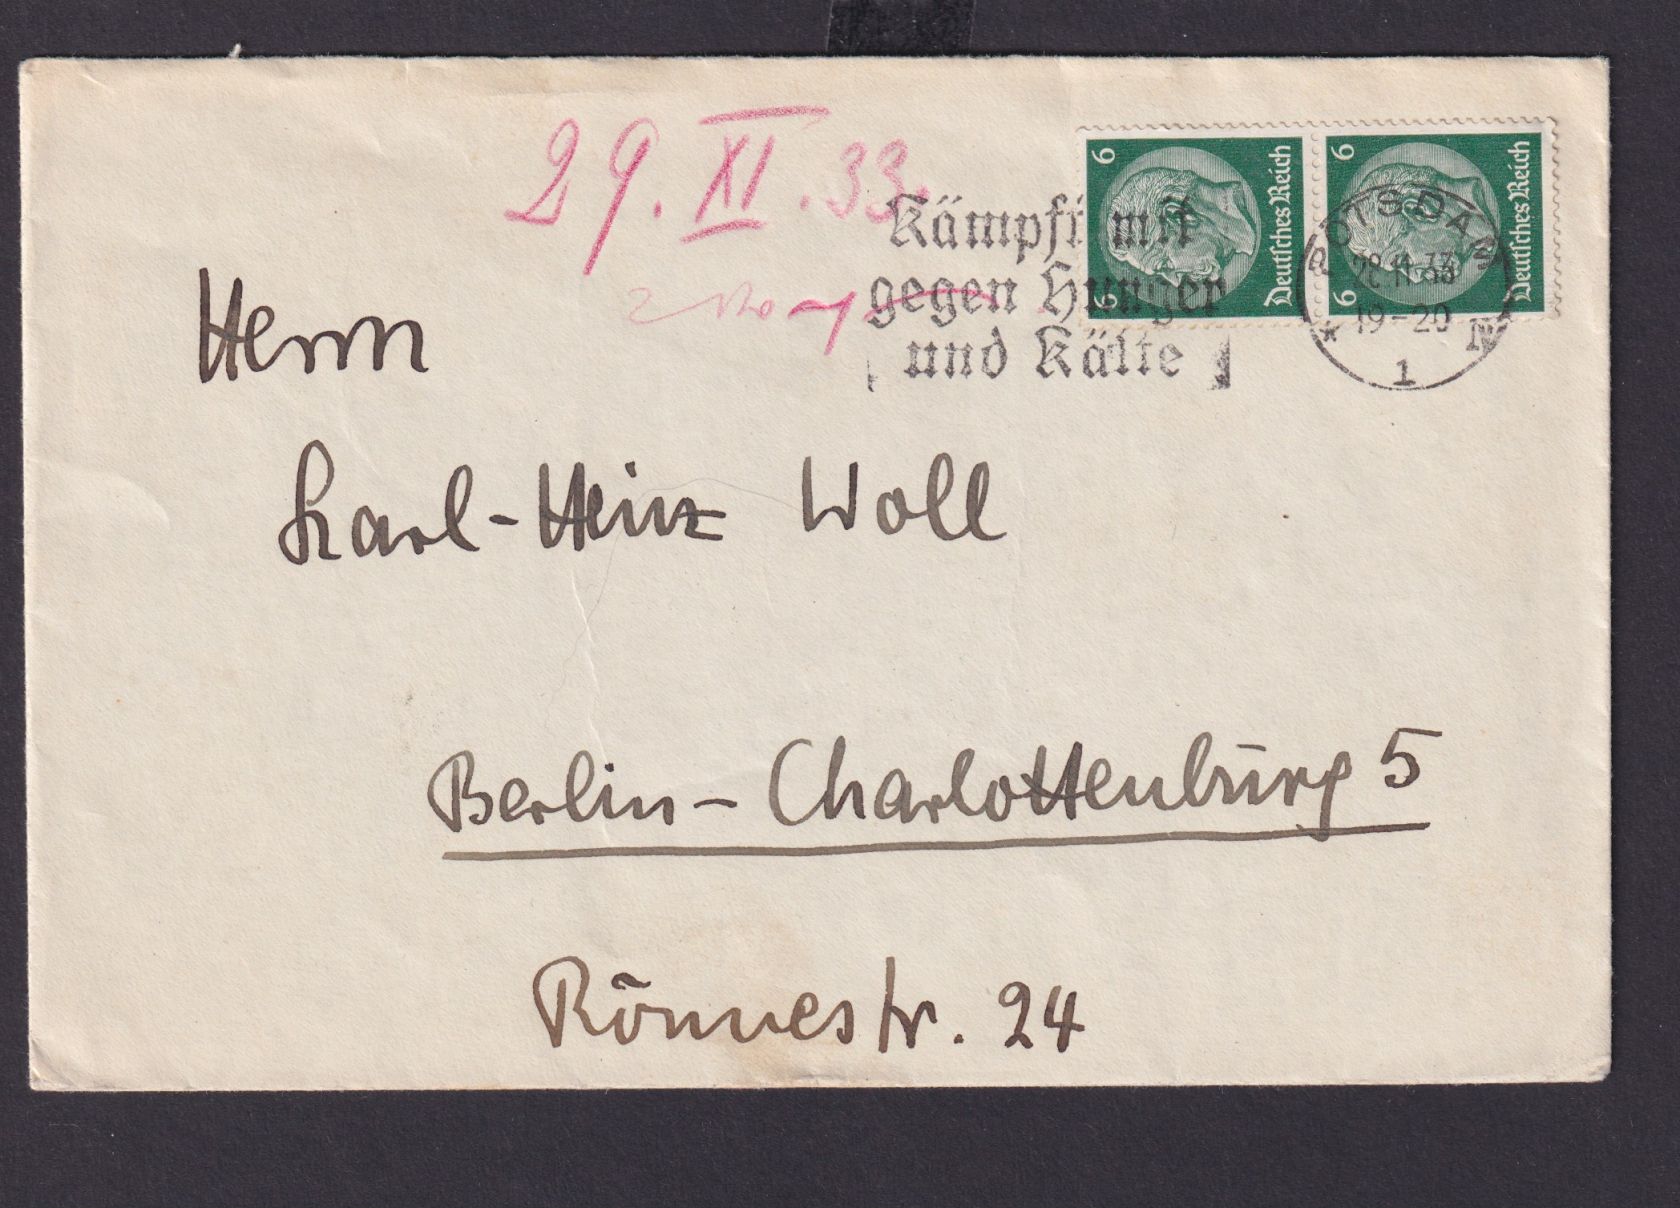 29. XI. 33.
Kämpft mit
gegen Hunger
und Kälte
6
6
Deutsches Reich
6
6
Deutsches Reich
POTSDAM
19-20
* IV
1
Herrn
Karl-Heinz Woll
Berlin-Charlottenburg 5
Rönnestr. 24